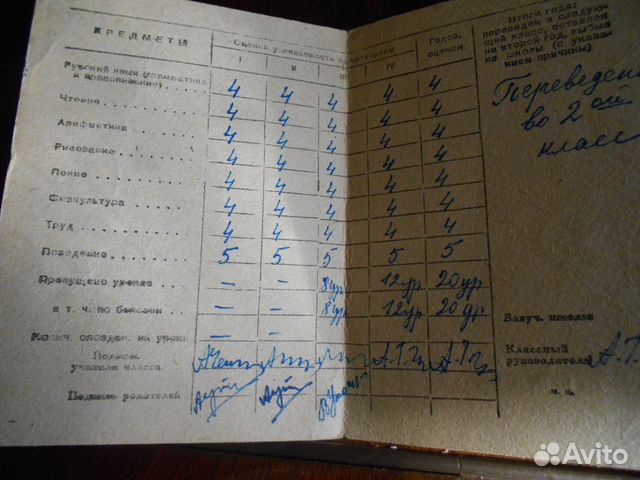 ПРЕДМЕТЫ
Оценки успеваемости по четвертям
Годов. оценки
I II III IV
Русский язык (грамматика и правописание) 4 4 4 4 4
Чтение 4 4 4 4 4
Арифметика 4 4 4 4 4
Рисование 4 4 4 4 4
Пение 4 4 4 4 4
Физкультура 4 4 4 4 4
Труд 4 4 4 4 4
Поведение 5 5 5 5 5
Пропущено уроков – – 8 ур 12 ур 20 ур
в т. ч. по болезни – – 8 ур 12 ур 20 ур
Колич. опоздан. на уроки – –
Подпись
учителя класса
Подпись родителей
Итоги года:
переведен в следую-
щий класс, оставлен
на второй год, выбыл
из школы (с указа-
нием причины)
Переведен
во 2 ой
класс
Завуч. школой
Классный
руководитель А.Т.
Avito